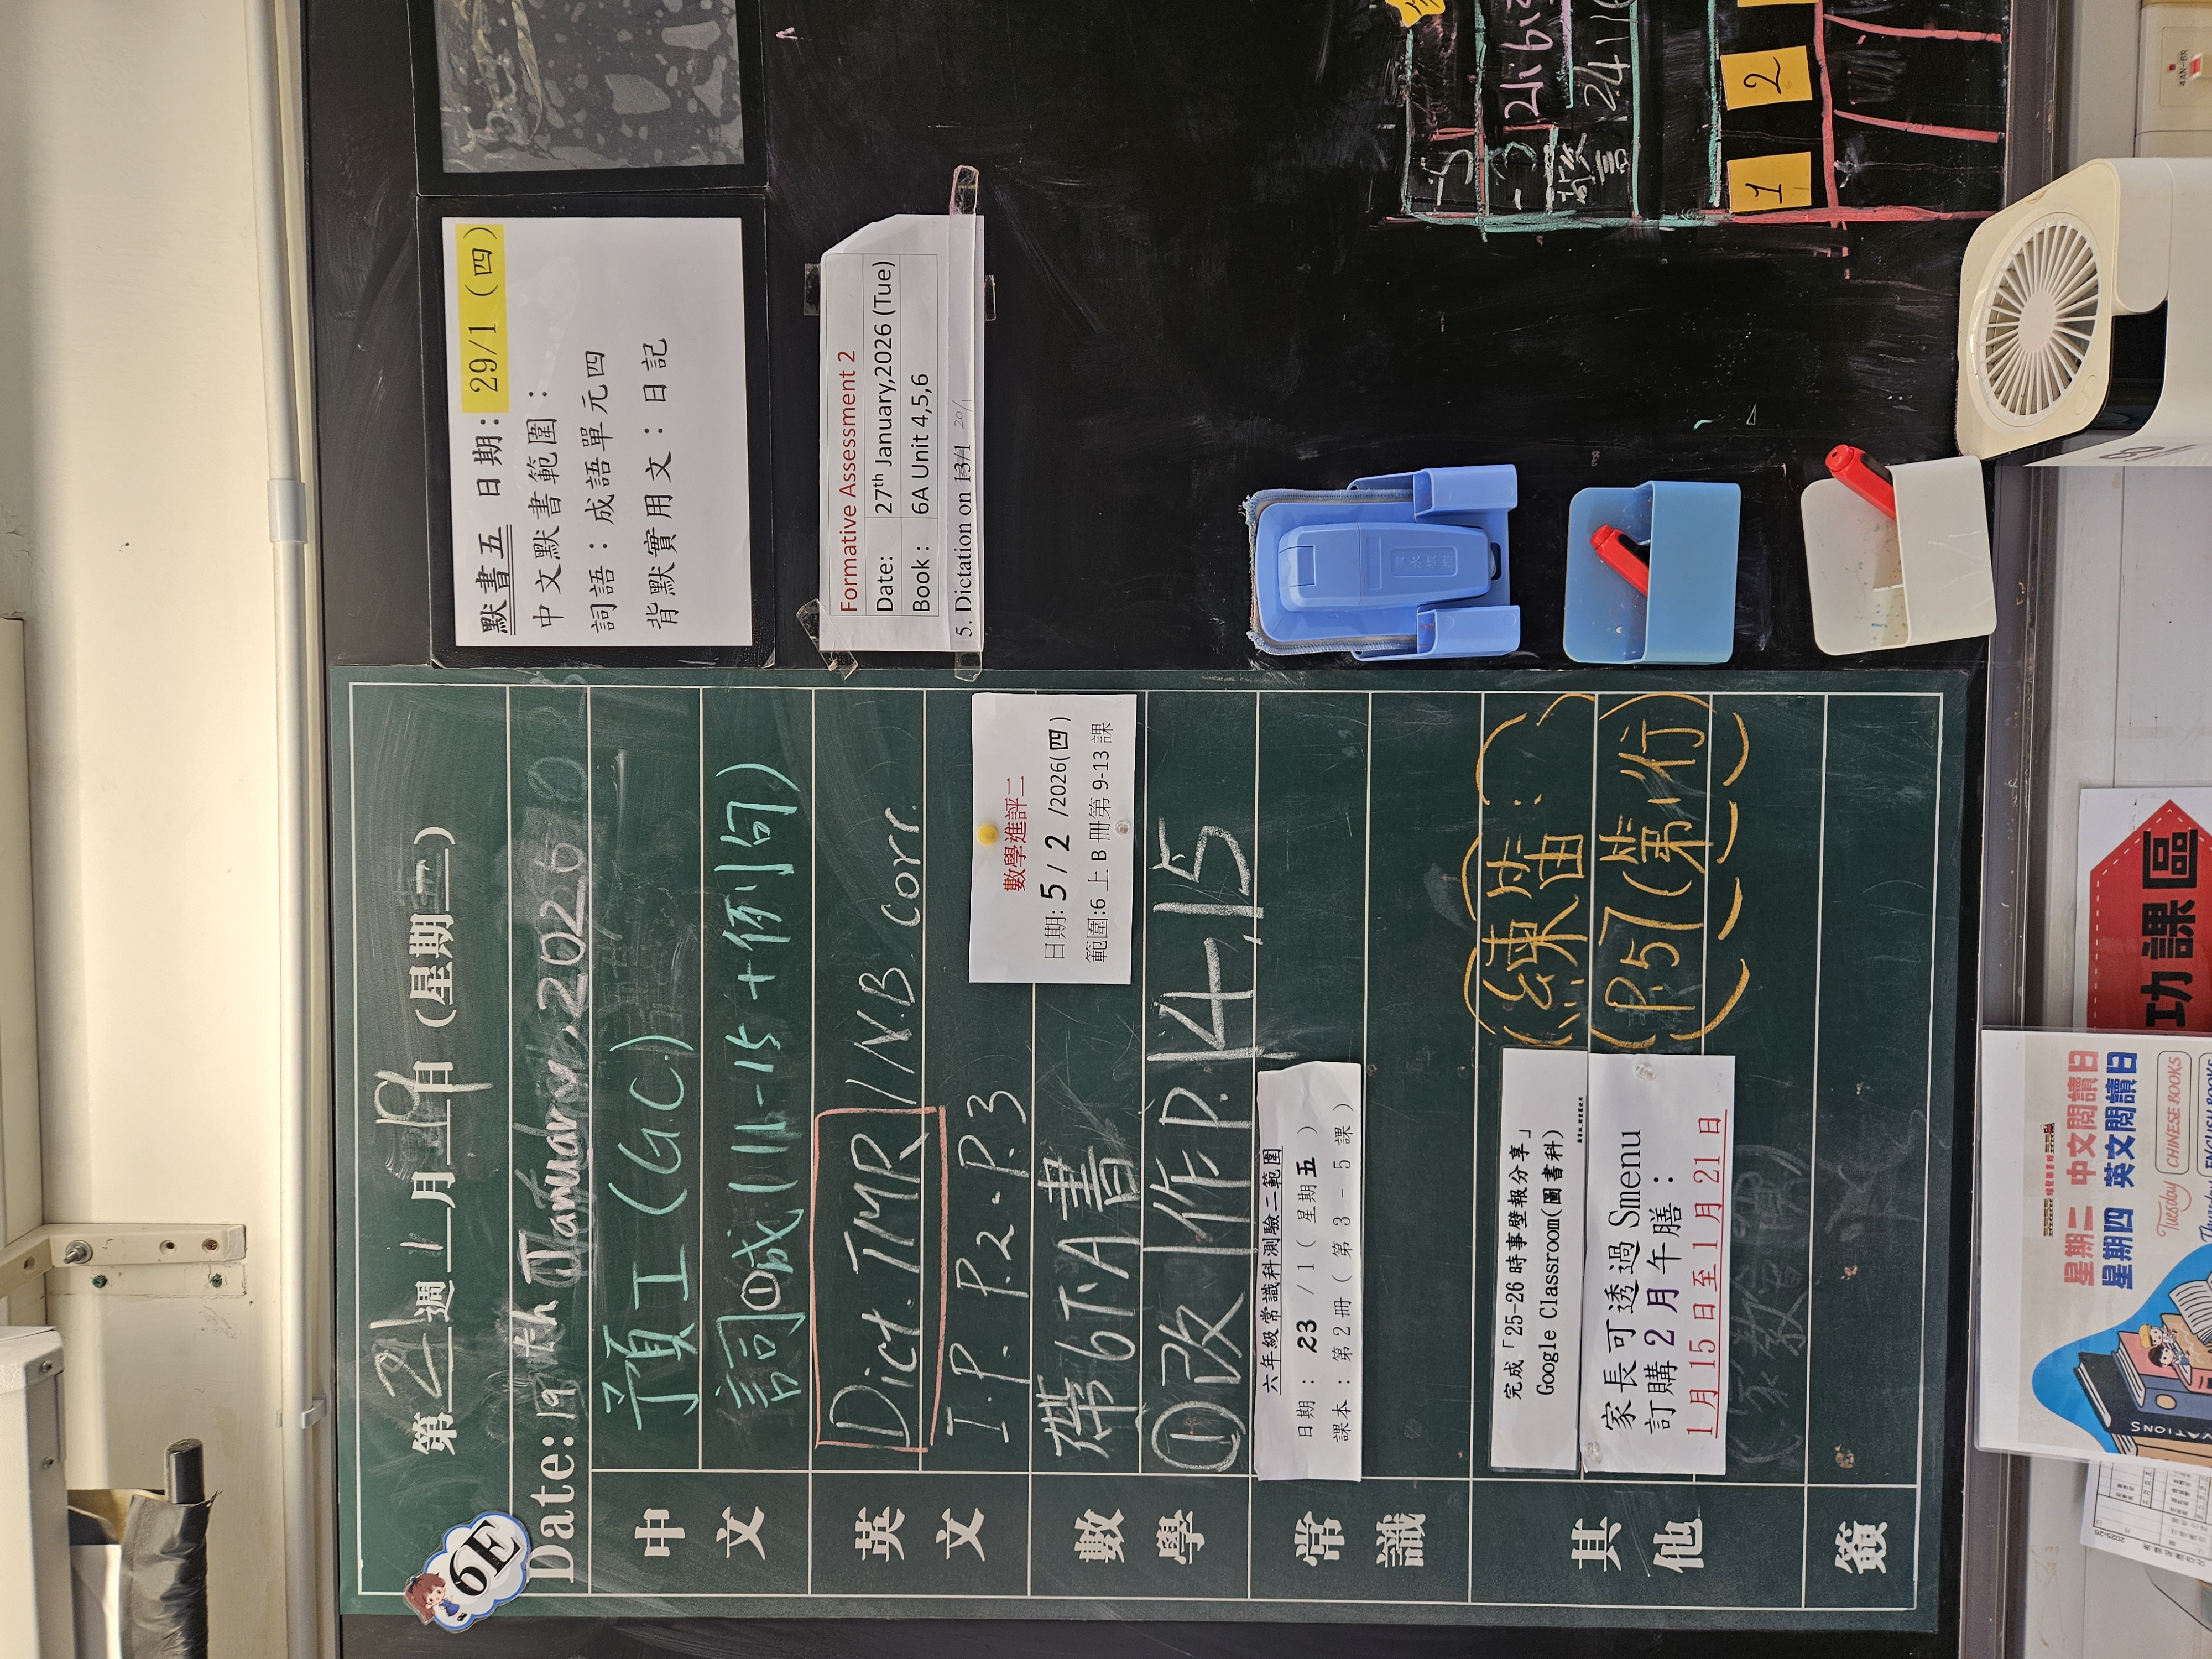 6E
第 21 週 1 月 19 日 (星期一)
Date: 19th January, 2026
中文
預工(G.C.)
詞①成11-15+例句)
英文
Dict. TMR / N.B corr.
I.P. P.2-P.3
數學
帶6下A書
①改作P.14,15
數學進評二
日期: 5 / 2 /2026(四)
範圍:6 上 B 冊第 9-13 課
常識
六年級常識科測驗二範圍
日期： 23 /1 ( 星期五 )
課本：第 2 冊 ( 第 3 – 5 課 )
其他
完成「25-26 時事壁報分享」
Google Classroom(圖書科)
家長可透過 Smenu
訂購 2 月午膳：
1 月 15 日至 1 月 21 日
(練笛:
(P.57(第1行)
簽
默書五 日期: 29/1 (四)
中文默書範圍：
詞語：成語單元四
背默實用文：日記
Formative Assessment 2
Date: 27th January,2026 (Tue)
Book : 6A Unit 4,5,6
5. Dictation on 13/1 20/1
1
2
功課區
星期二 中文閱讀日
Tuesday CHINESE BOOKS
星期四 英文閱讀日